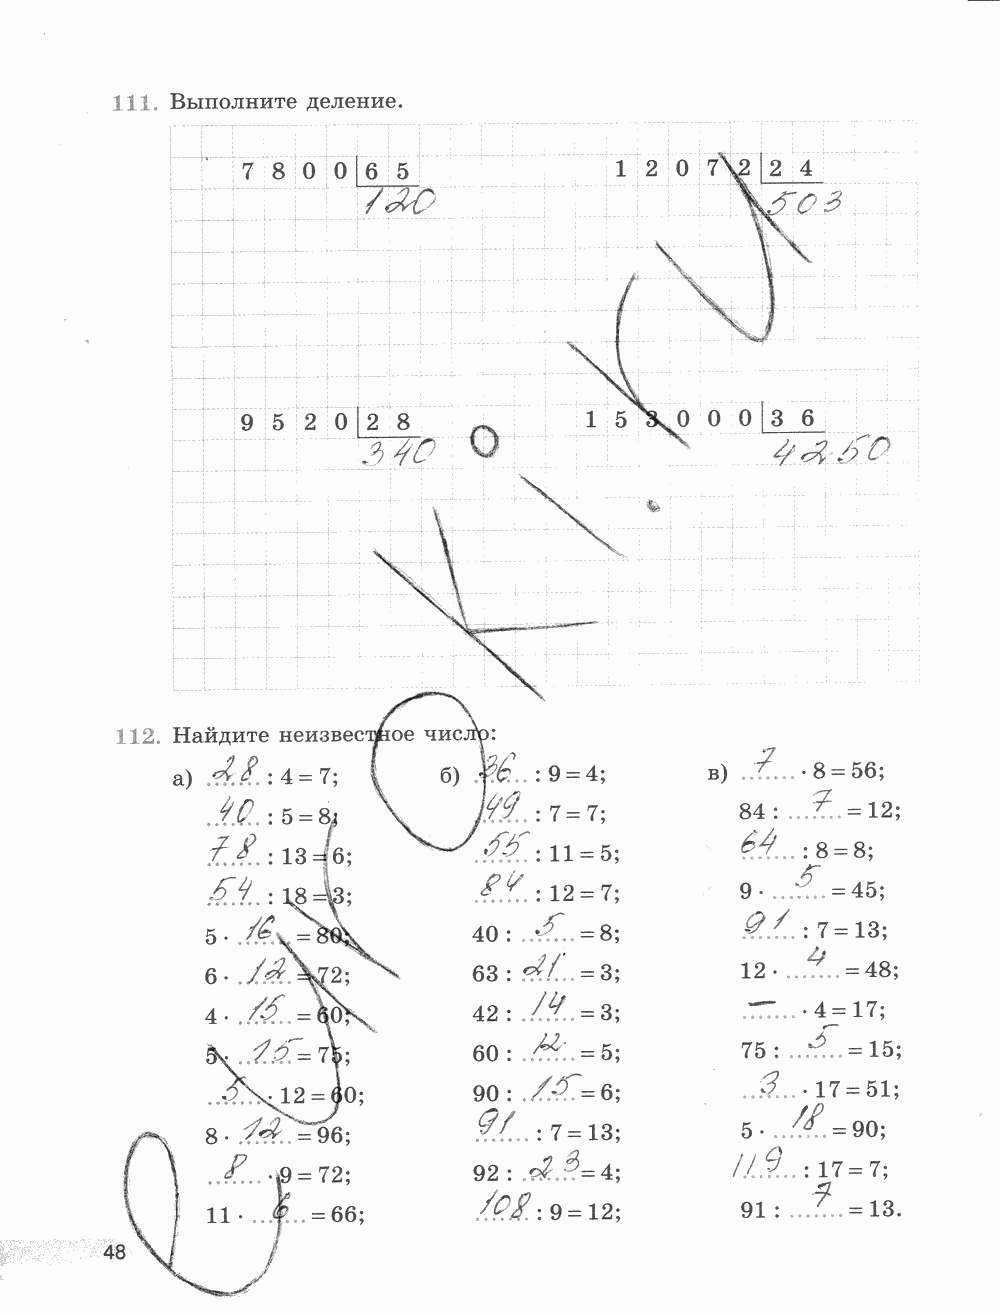 111. Выполните деление.
7 8 0 0 6 5
120
1 2 0 7 2 2 4
503
9 5 2 0 2 8
340
1 5 3 0 0 0 3 6
4250
112. Найдите неизвестное число:
а) 28 : 4 = 7;
40 : 5 = 8;
78 : 13 = 6;
54 : 18 = 3;
5 · 16 = 80;
6 · 12 = 72;
4 · 15 = 60;
5 · 15 = 75;
5 · 12 = 60;
8 · 12 = 96;
8 · 9 = 72;
11 · 6 = 66;
б) 36 : 9 = 4;
49 : 7 = 7;
55 : 11 = 5;
84 : 12 = 7;
40 : 5 = 8;
63 : 21 = 3;
42 : 14 = 3;
60 : 12 = 5;
90 : 15 = 6;
91 : 7 = 13;
92 : 23 = 4;
108 : 9 = 12;
в) 7 · 8 = 56;
84 : 7 = 12;
64 : 8 = 8;
9 · 5 = 45;
91 : 7 = 13;
12 · 4 = 48;
— · 4 = 17;
75 : 5 = 15;
3 · 17 = 51;
5 · 18 = 90;
119 : 17 = 7;
91 : 7 = 13.
48